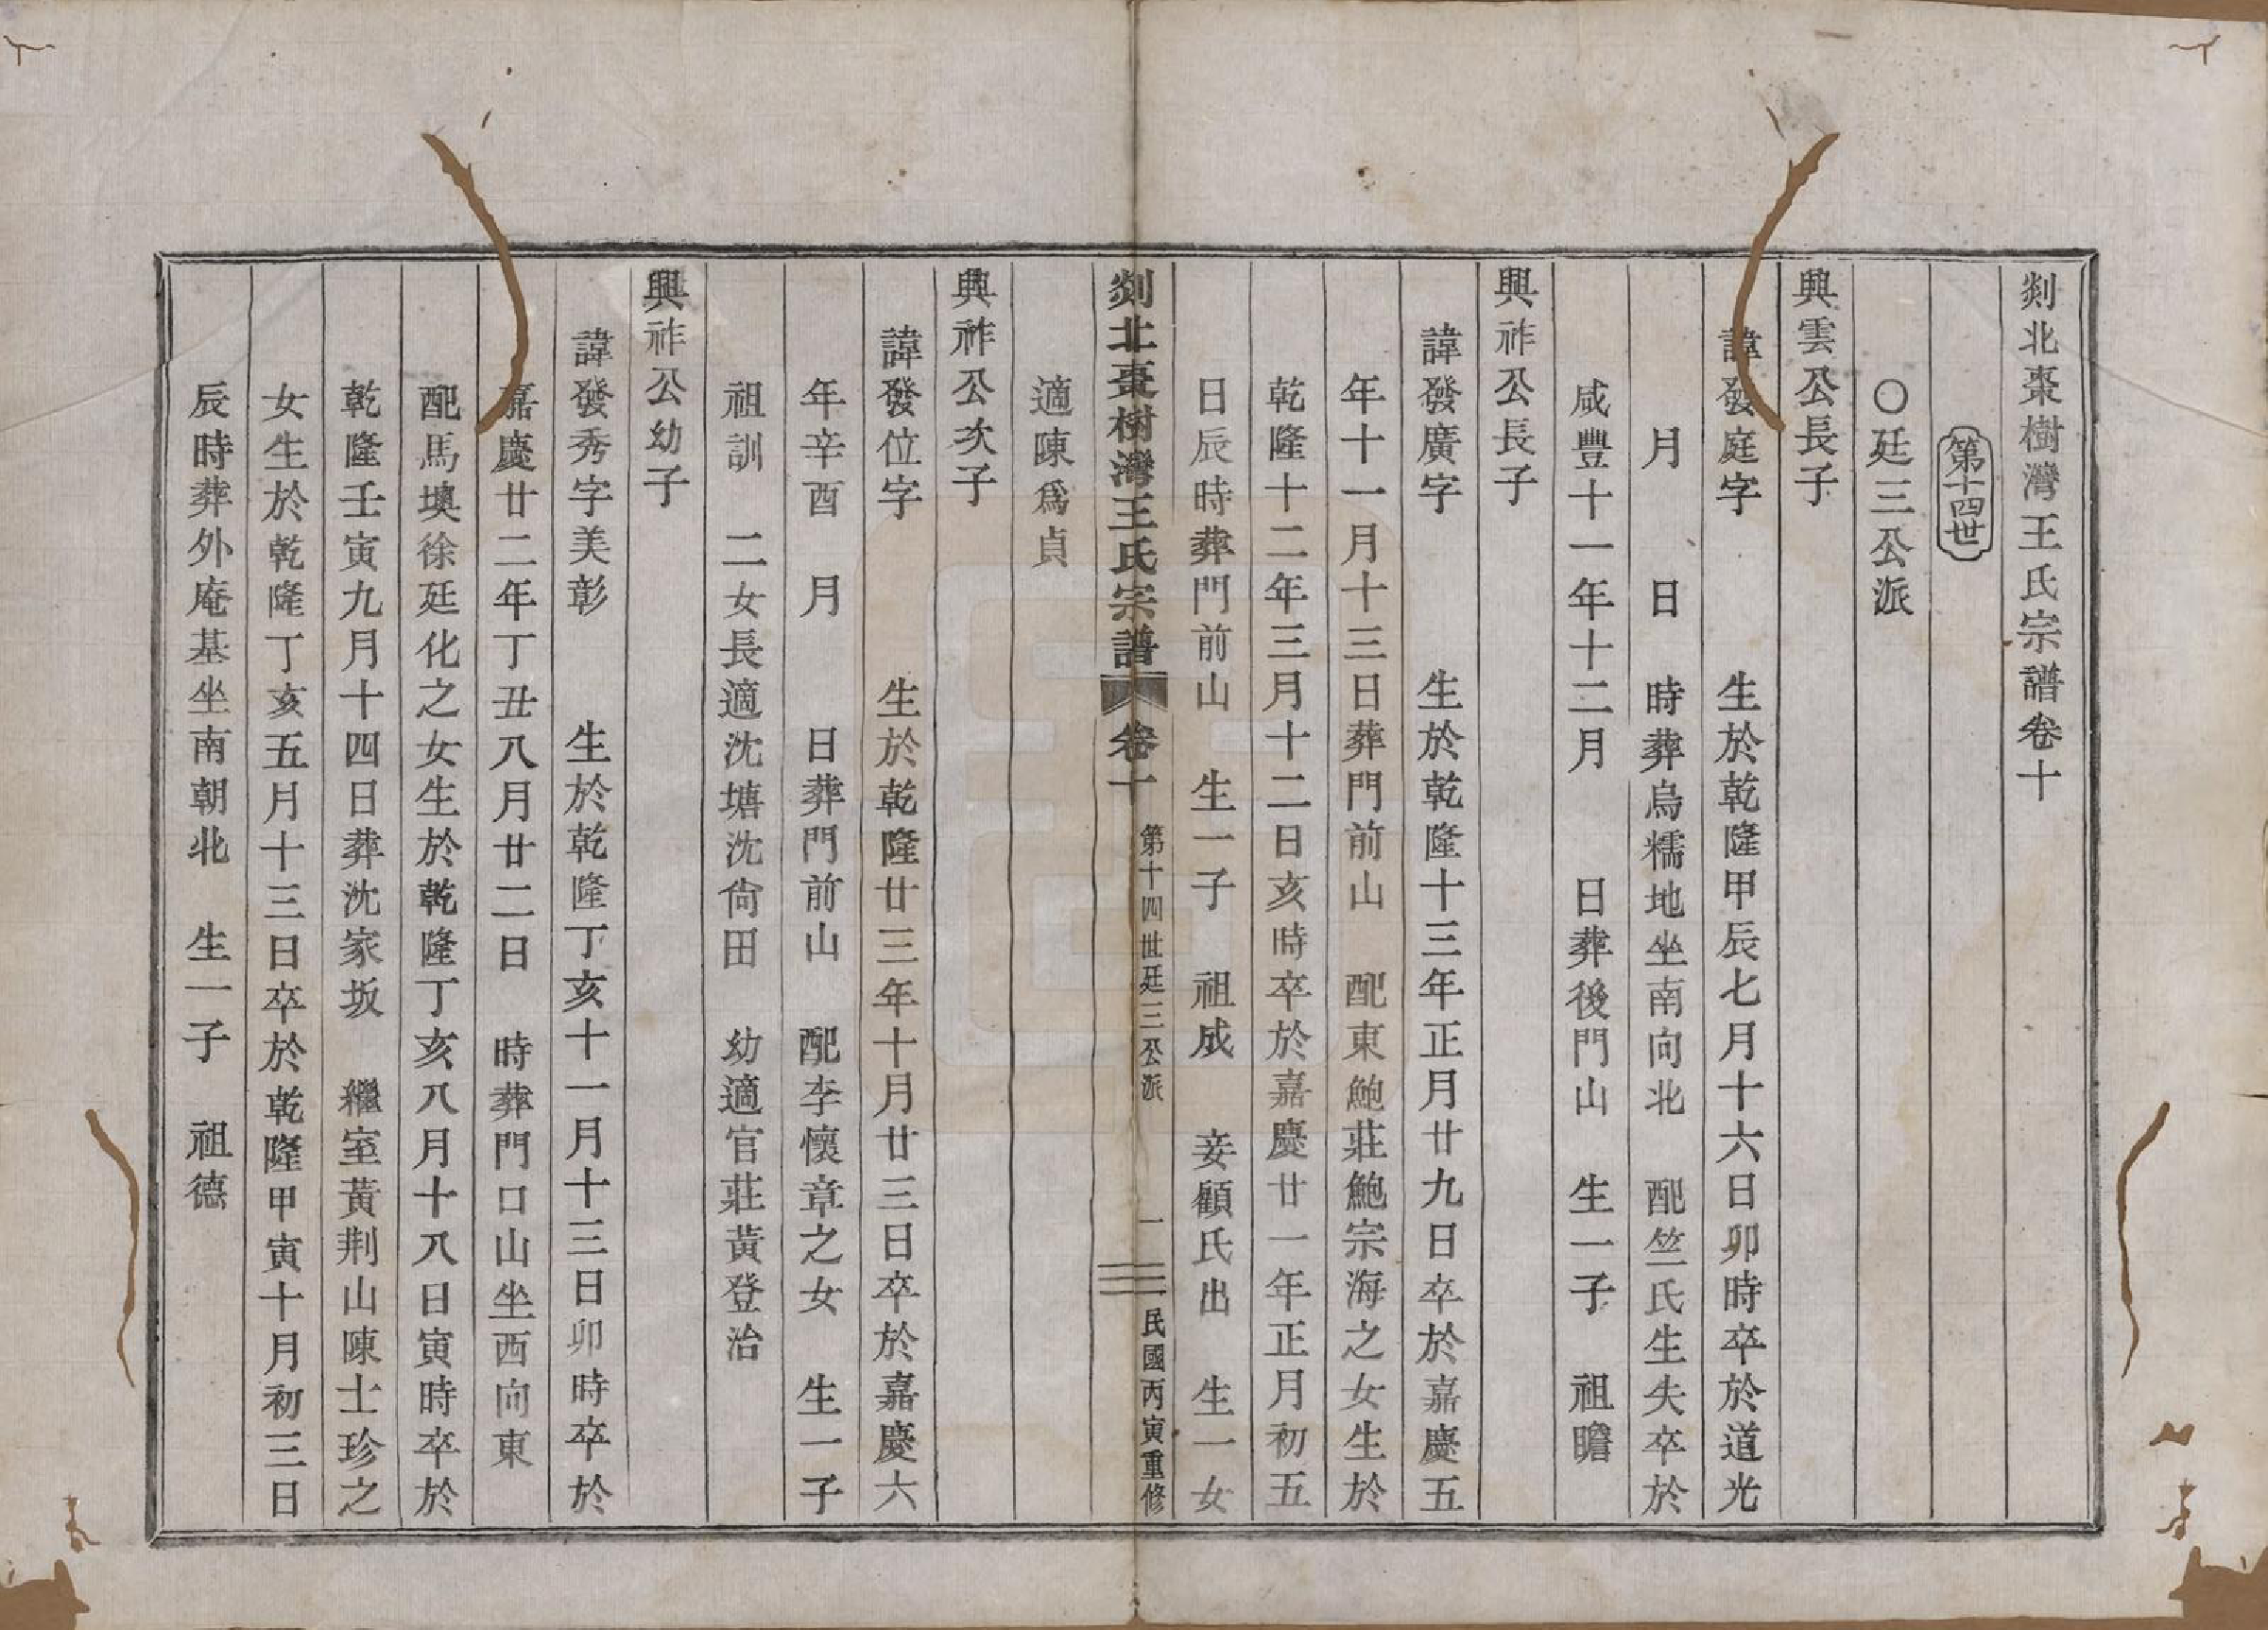 剡北棗樹灣王氏宗譜卷十
第十四世
〇廷三公派
興雲公長子
諱發庭字　　　生於乾隆甲辰七月十六日卯時卒於道光
月　　日　時葬烏糯地坐南向北　配竺氏生失卒於
咸豐十一年十二月　　日葬後門山　生一子　祖瞻
興祚公長子
諱發廣字　　　生於乾隆十三年正月廿九日卒於嘉慶五
年十一月十三日葬門前山　配東鮑莊鮑宗海之女生於
乾隆十二年三月十二日亥時卒於嘉慶廿一年正月初五
日辰時葬門前山　生一子　祖成　妾顧氏出　生一女
剡北棗樹灣王氏宗譜　卷十　第十四世廷三公派　一　民國丙寅重修
適陳爲貞
興祚公次子
諱發位字　　　生於乾隆廿三年十月廿三日卒於嘉慶六
年辛酉　月　　日葬門前山　配李懷章之女　生一子
祖訓　二女長適沈塘沈尙田　幼適官莊黃登治
興祚公幼子
諱發秀字美彰　　生於乾隆丁亥十一月十三日卯時卒於
嘉慶廿二年丁丑八月廿二日　時葬門口山坐西向東
配馬墺徐廷化之女生於乾隆丁亥八月十八日寅時卒於
乾隆壬寅九月十四日葬沈家坂　繼室黃荆山陳士珍之
女生於乾隆丁亥五月十三日卒於乾隆甲寅十月初三日
辰時葬外庵基坐南朝北　生一子　祖德